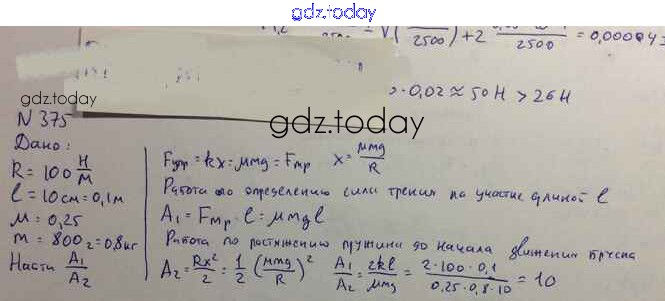 gdz.today
2500 ) + 2 2500 = 0,00004
gdz.today
· 0,02 ≈ 50 Н > 26 Н
gdz.today
N 375
Дано:
R = 100 Н/м
l = 10 см = 0,1 м
μ = 0,25
m = 800 г = 0,8 кг
Найти A₁/A₂
Fупр = kx = μmg = Fтр x = μmg/R
Работа по определению силы трения на участке длиной l
A₁ = Fтр · l = μmgl
Работа по растяжению пружины до начала движения бруска
A₂ = Rx²/2 = 1/2 (μmg/R)² A₁/A₂ = 2kl/μmg = 2·100·0,1/0,25·0,8·10 = 10